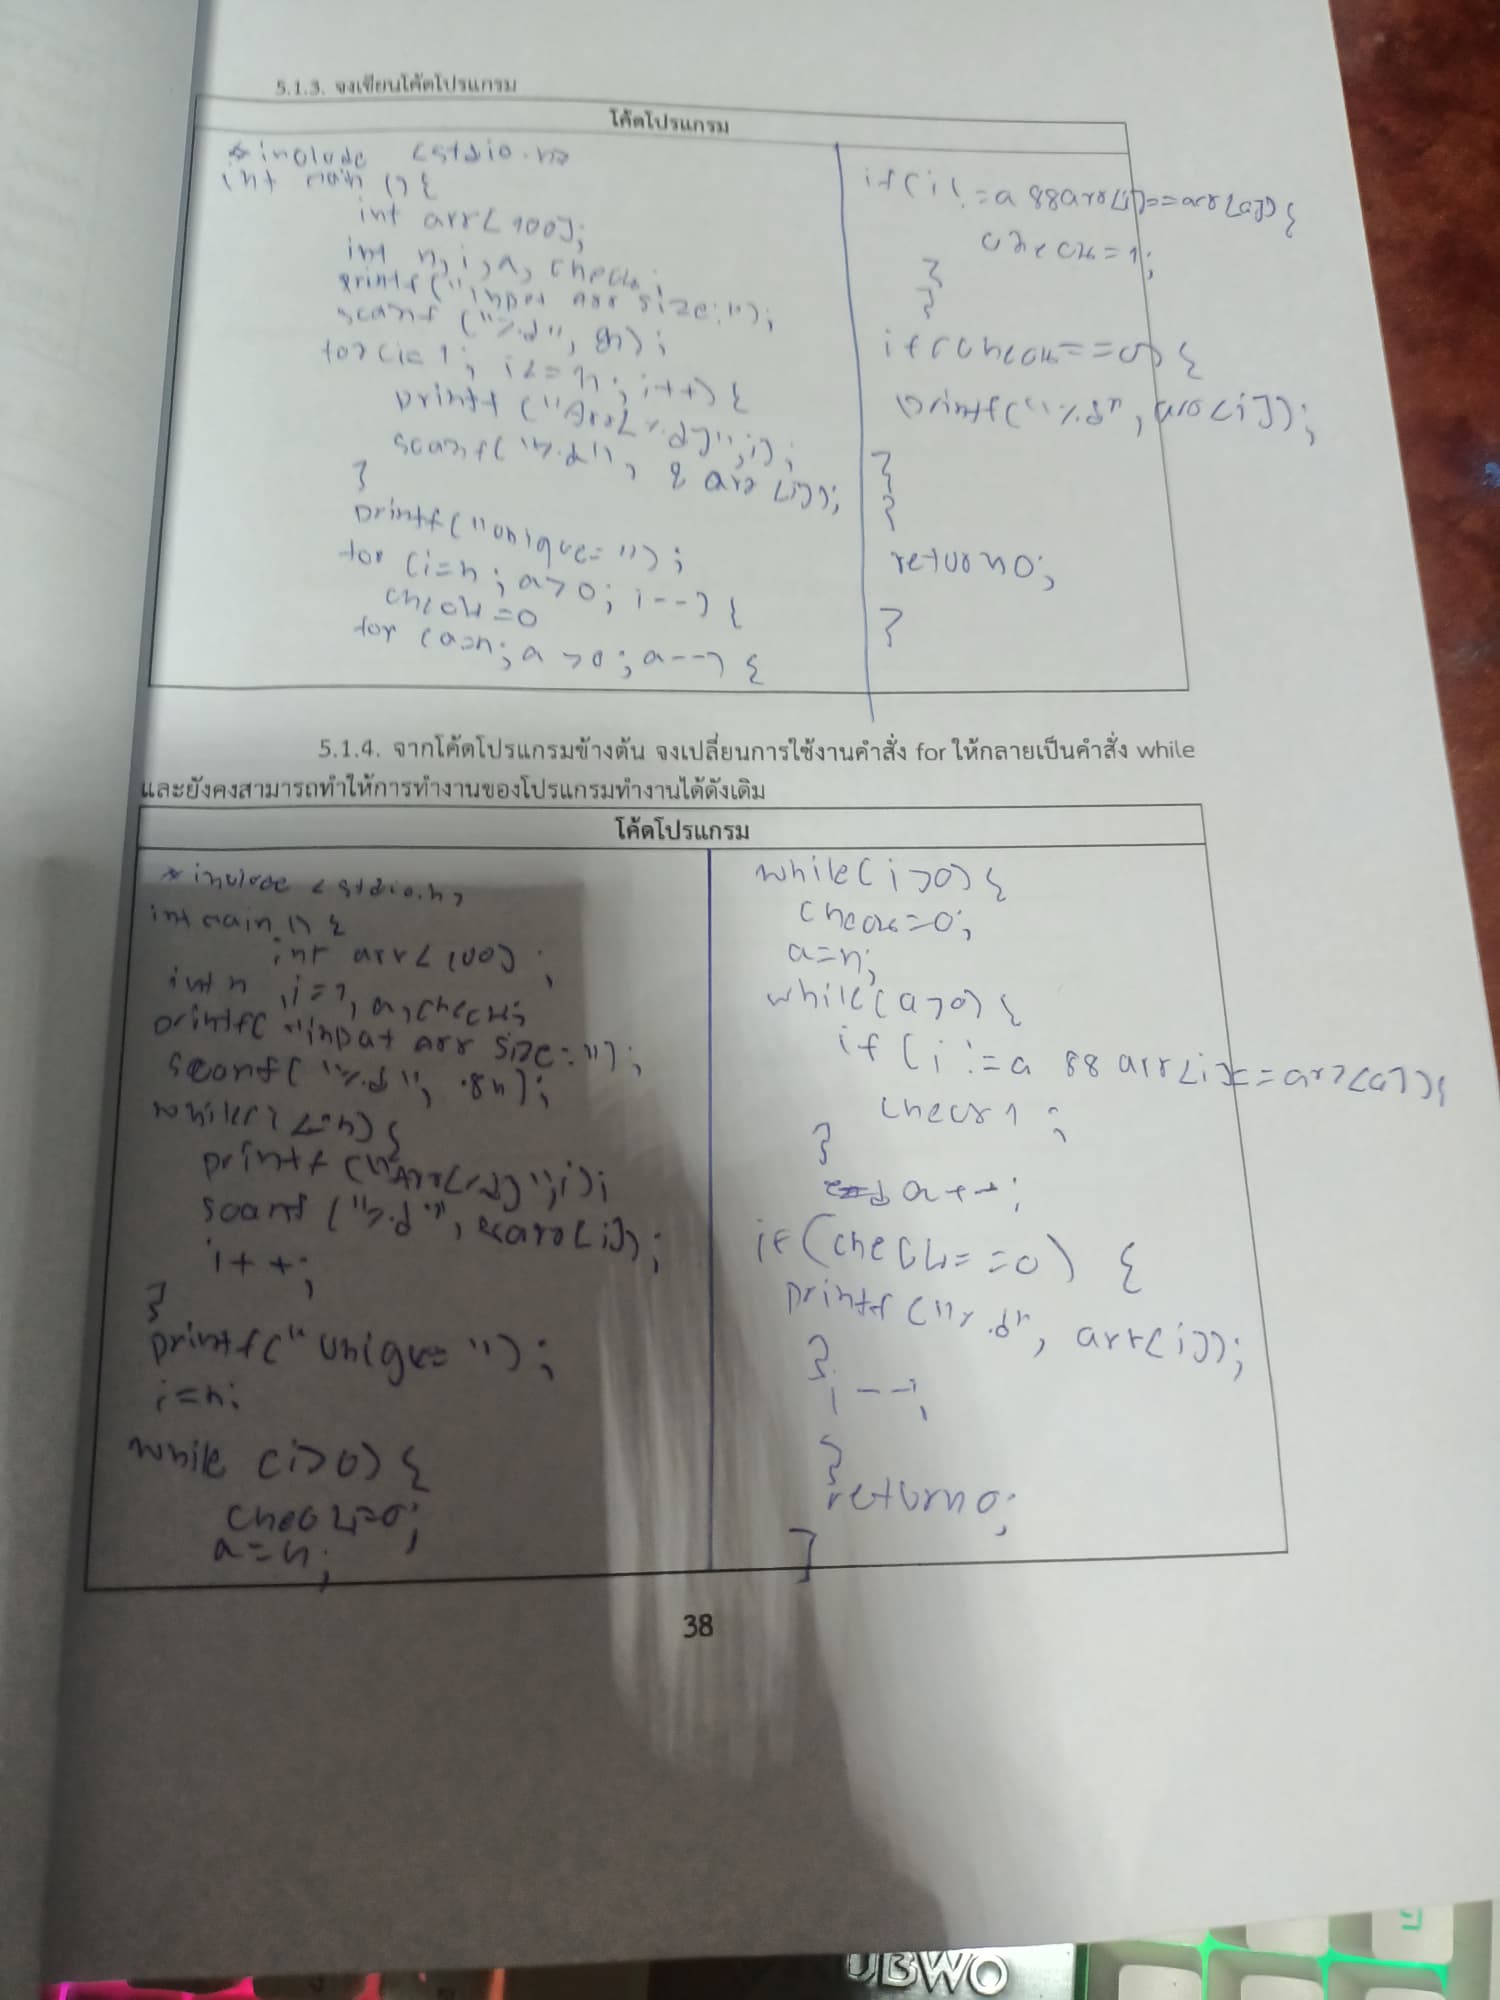 5.1.3. จงเขียนโค้ดโปรแกรม
โค้ดโปรแกรม
#include <stdio.h>
int main () {
int arr[100];
int n, i, a, check;
printf("input arr size:");
scanf ("%d", &n);
for (i=1; i<=n; i++) {
printf ("Arr[%d]",i);
scanf("%d", & arr[i]);
}
printf("unique=");
for (i=n; a>0; i--) {
check=0
for (a=n; a>0; a--) {
if(i!=a &&arr[i]==arr[a]) {
check=1;
}
}
if(check==0) {
printf("%d", arr[i]);
}
}
return 0;
}
5.1.4. จากโค้ดโปรแกรมข้างต้น จงเปลี่ยนการใช้งานคำสั่ง for ให้กลายเป็นคำสั่ง while
และยังคงสามารถทำให้การทำงานของโปรแกรมทำงานได้ดังเดิม
โค้ดโปรแกรม
#include <stdio.h>
int main () {
int arr[100];
int n, i=1, a, check;
printf("input arr size=");
scanf("%d", &n);
while(i<=n) {
printf ("Arr[%d]",i);
scanf ("%d", &arr[i]);
i++;
}
printf("unique= ");
i=n;
while (i>0) {
check=0;
a=n;
while(i>0) {
check=0;
a=n;
while(a>0) {
if (i!=a && arr[i]==arr[a]) {
check 1;
}
a++;
if(check==0) {
printf("%d", arr[i]);
}
i--;
}
return 0;
}
38
UBWO